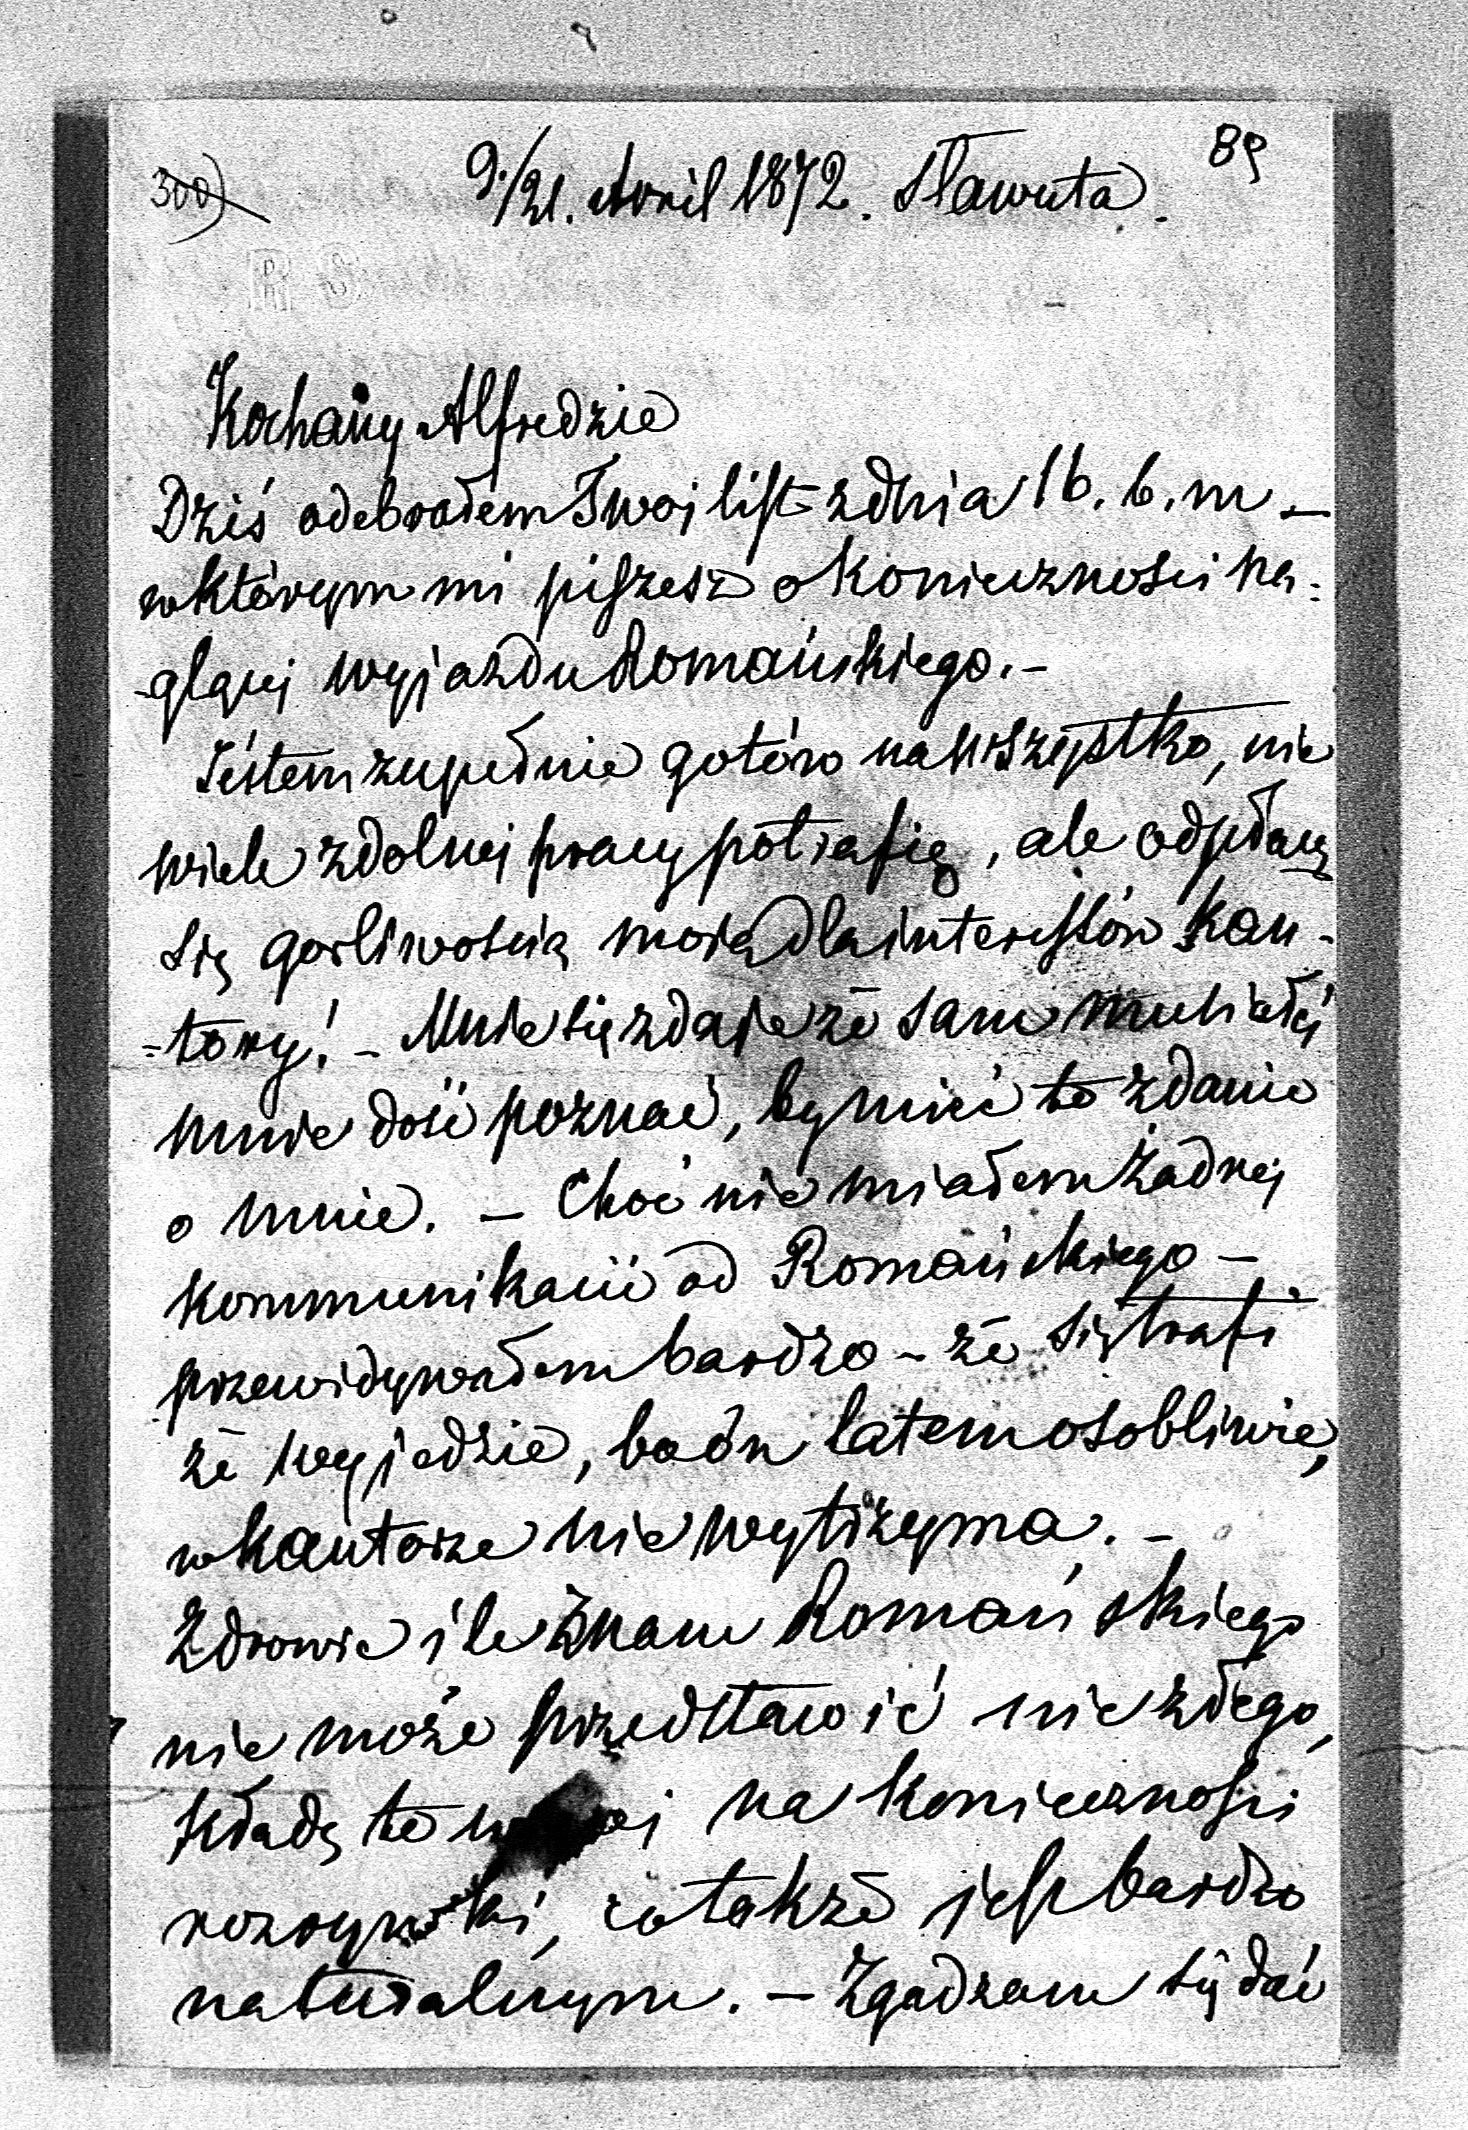 89
300)
9./21. Avril 1872. Sławuta.
RS
Kochany Alfredzie
Dziś odebrałem Twoj list z dnia 16. b. m –
w którym mi piszesz o konieczności na-
-głącej wyjazdu Romańskiego. –
Jéstem zupełnie gotów na wszystko, nie
wiele zdolnej pracy potrafię, ale odpłacę
się gorliwością moią dla interessów Kan-
-tory! – Mnie się zdaje że sam musiałeś
mnie dość poznać, by mieć to zdanie
o mnie. – Choć nie miałem żadnej
kommunikacii od Romańskiego –
przewidywałem bardzo – że się trafi
że wyjedzie, bo ón latem osobliwie,
w kantorze nie wytrzyma. –
Zdrowie ile znam Romańskiego
nie może przedstawić nic złego,
kładę to na konieczności
rozrywki, co także jest bardzo
naturalnym. – Zgadzam się dać